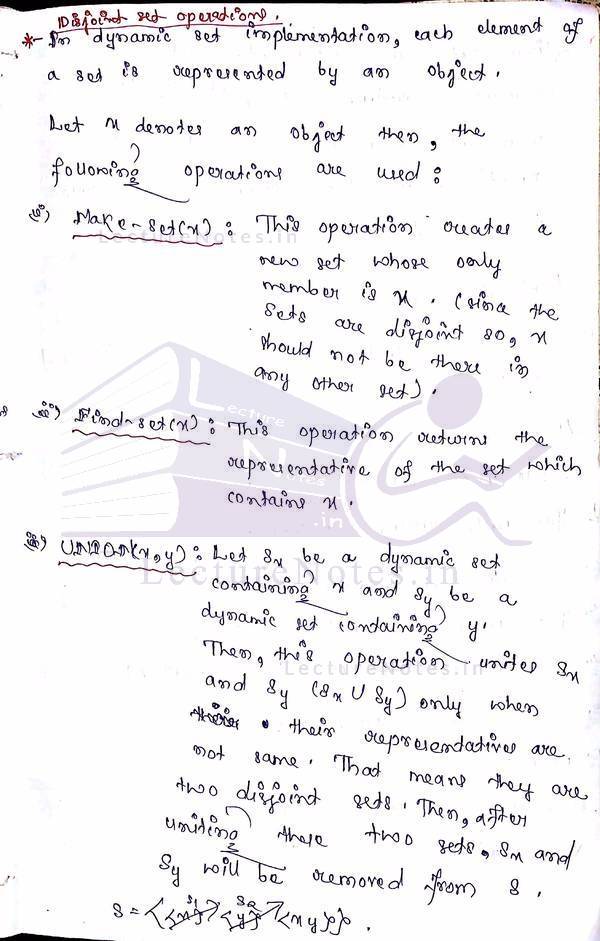 Disjoint set operations.
*- In dynamic set implementation, each element of
a set is represented by an object.
Let x denotes an object then, the
following operations are used :
i) Make-Set(x) : This operation creates a
LectureNotes.in
new set whose only
member is x. (since the
sets are disjoint so, x
should not be there in
any other set).
ii) Find-set(x) : This operation returns the
representative of the set which
contains x.
Lecture
Notes
.in
iii) UNION(x,y) : Let Sx be a dynamic set
LectureNotes.in
containing x and Sy be a
dynamic set containing y.
Then, this operation unites Sx
LectureNotes.in
and Sy (Sx U Sy) only when
their representatives are
not same. That means they are
two disjoint sets. Then, after
uniting these two sets, Sx and
Sy will be removed from S.
S1 S2
S = {{x} {y} {xy}}.